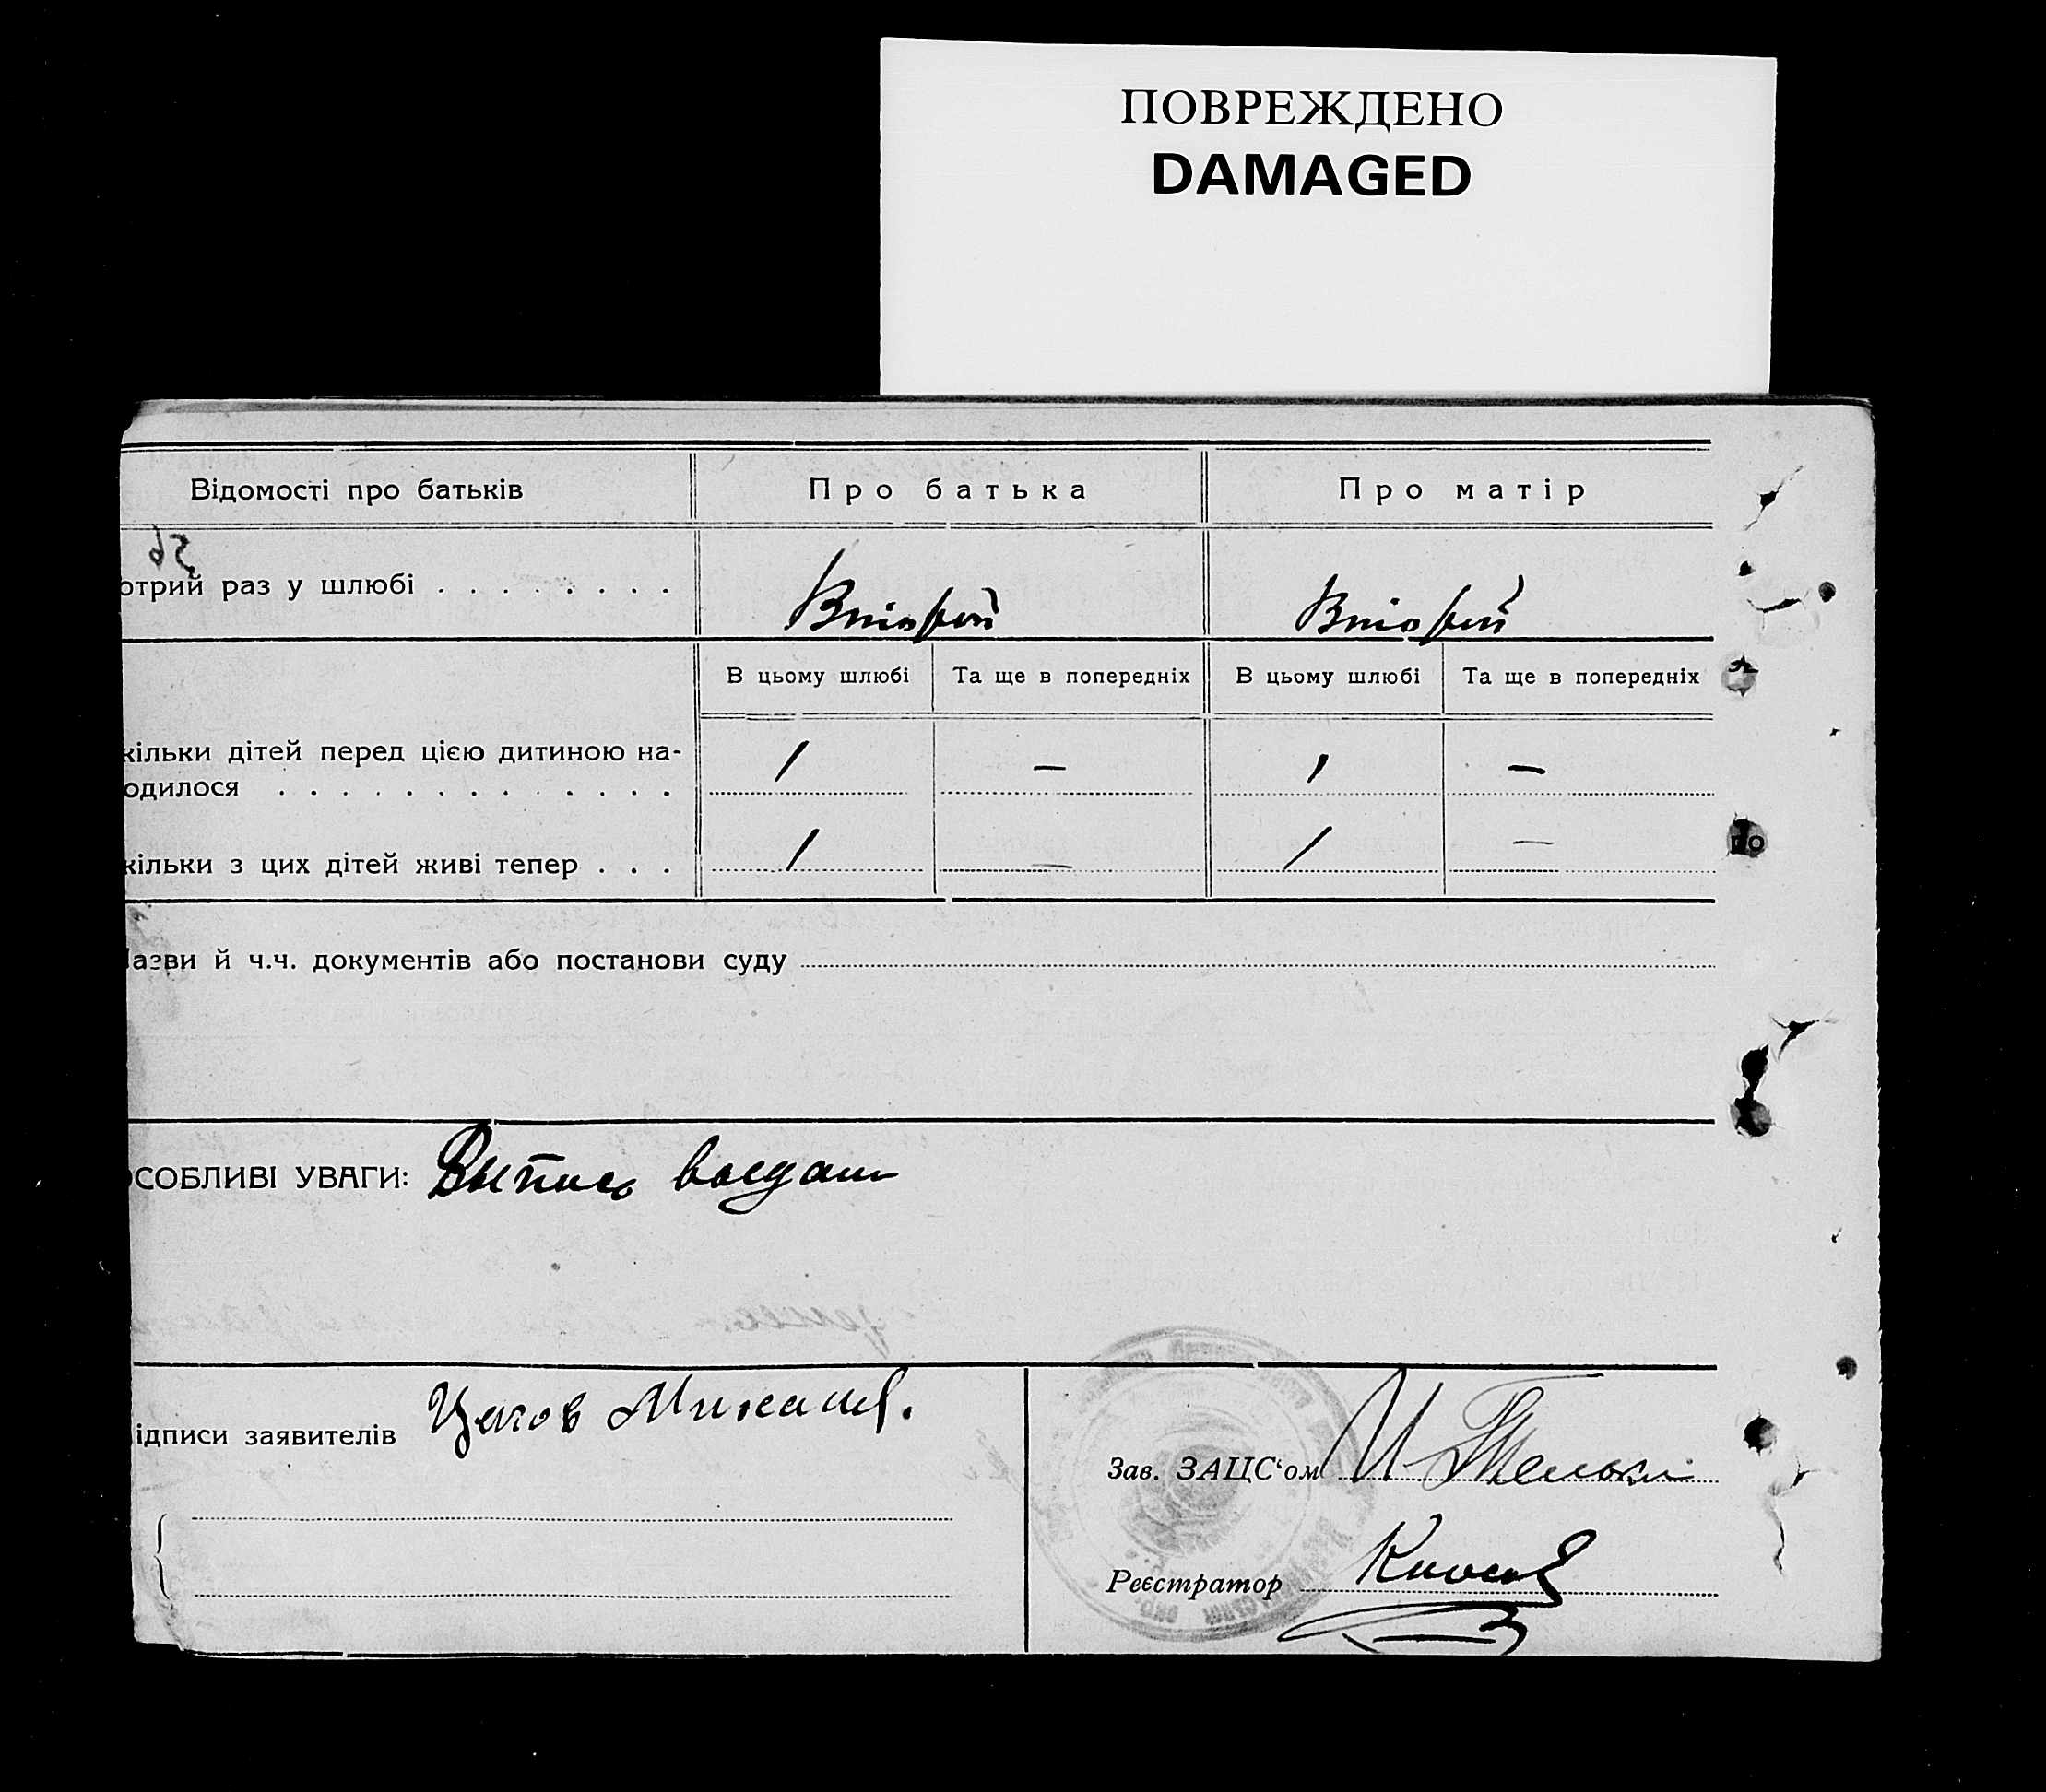 ПОВРЕЖДЕНО
DAMAGED
Відомості про батьків
Про батька
Про матір
отрий раз у шлюбі . . . . . . . .
Второй
Второй
В цьому шлюбі
Та ще в попередніх
В цьому шлюбі
Та ще в попередніх
кільки дітей перед цією дитиною на-
одилося . . . . . . . . . . . . .
1
—
1
—
кільки з цих дітей живі тепер . . .
1
—
1
—
азви й ч.ч. документів або постанови суду
СОБЛИВІ УВАГИ: Выпись
ідписи заявителів
Зав. ЗАЦС‘ом
Реєстратор